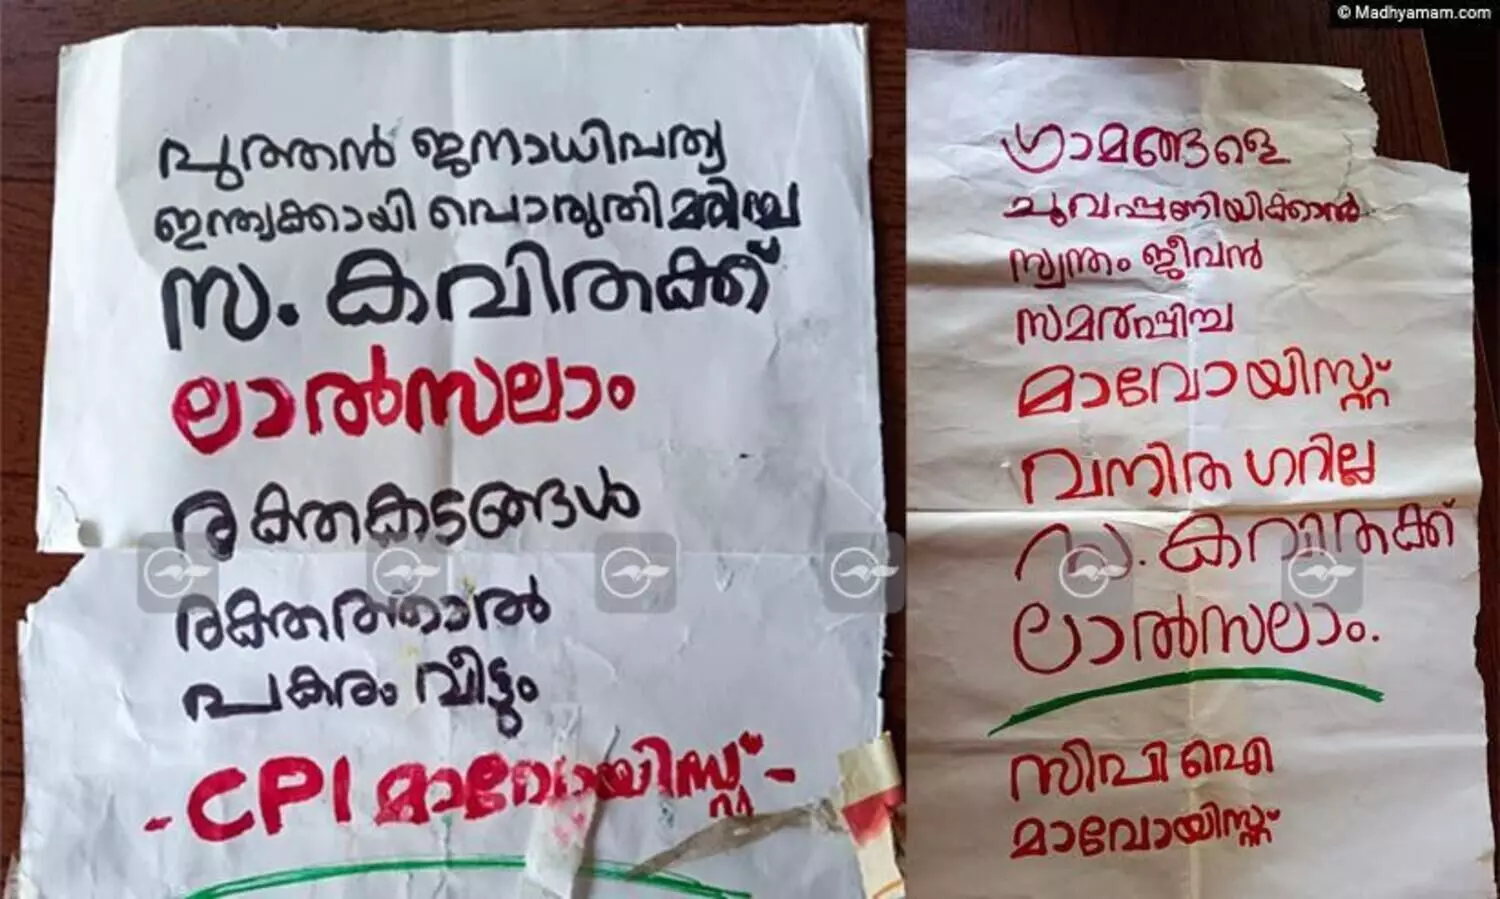 © Madhyamam.com
പുത്തൻ ജനാധിപത്യ
ഇന്ത്യക്കായി പൊരുതി മരിച്ച
സ. കവിതക്ക്
ലാൽസലാം
രക്തകടങ്ങൾ
രക്തത്താൽ
പകരം വീട്ടും
- CPI മാവോയിസ്റ്റ് -
ഗ്രാമങ്ങളെ
ചുവപ്പണിയിക്കാൻ
സ്വന്തം ജീവൻ
സമർപ്പിച്ച
മാവോയിസ്റ്റ്
വനിത ഗറില്ല
സ. കവിതക്ക്
ലാൽസലാം.
സിപിഐ
മാവോയിസ്റ്റ്